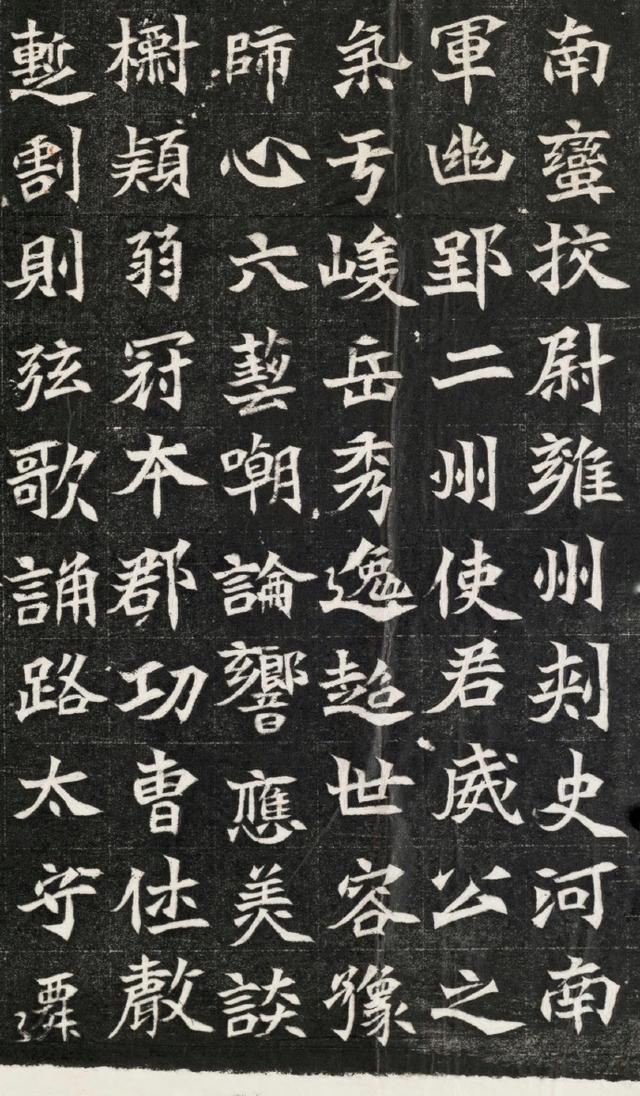 南蠻挍尉雍州刾史河南
軍幽郢二州使君威公之
氣亐峻岳秀逸超世容豫
師心六藝嘲論響應美談
櫹穎弱冠夲郡功曹仕
割則弦歌誦路太守